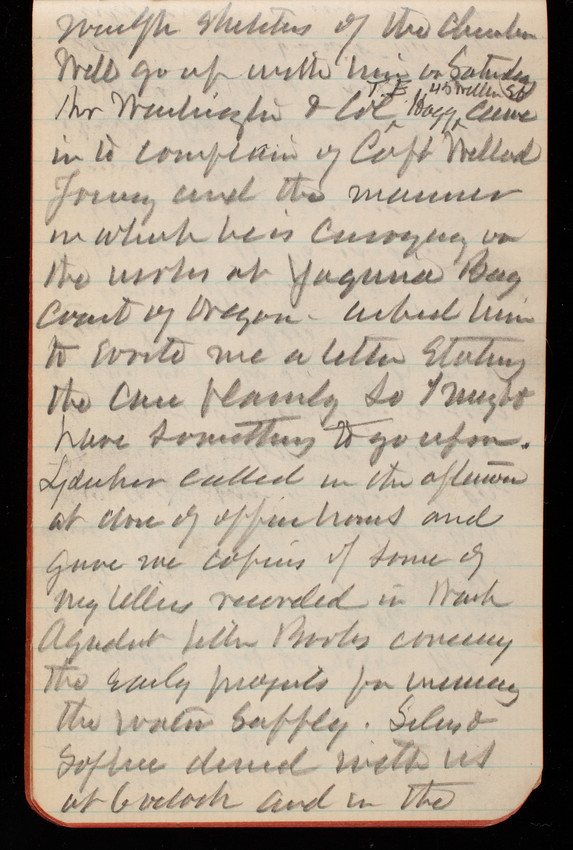 rough sketches of the
Will go up with him on Saturday
T. E. 45 Willm St
Mr Washington & Col Hogg came
in to complain of Capt Willard
Young and the manner
in which he is carrying on
the works at Yaquina Bay
Coast of Oregon. asked him
to write me a letter stating
the case plainly so I might
have something to go upon.
called in the afternoon
at close of office hours and
gave me copies of some of
my letters recorded in Wash
Aqueduct letter Books concerning
the early projects for increasing
the water supply.
Sophie dined with us
at 6 oclock and in the